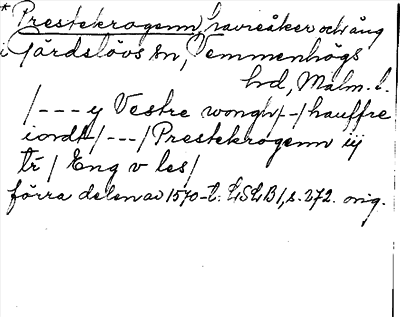 * Prestekrogenn, havreåker och äng
i Gärdslövs sn, Vemmenhögs
hd, Malm. l.
/--- y Vestre wongh/-/hauffre
iordt/---/Prestekrogenn iij
tr/ Eng v les/
förra delen av 1570-t. LSLB1, s. 272. orig.